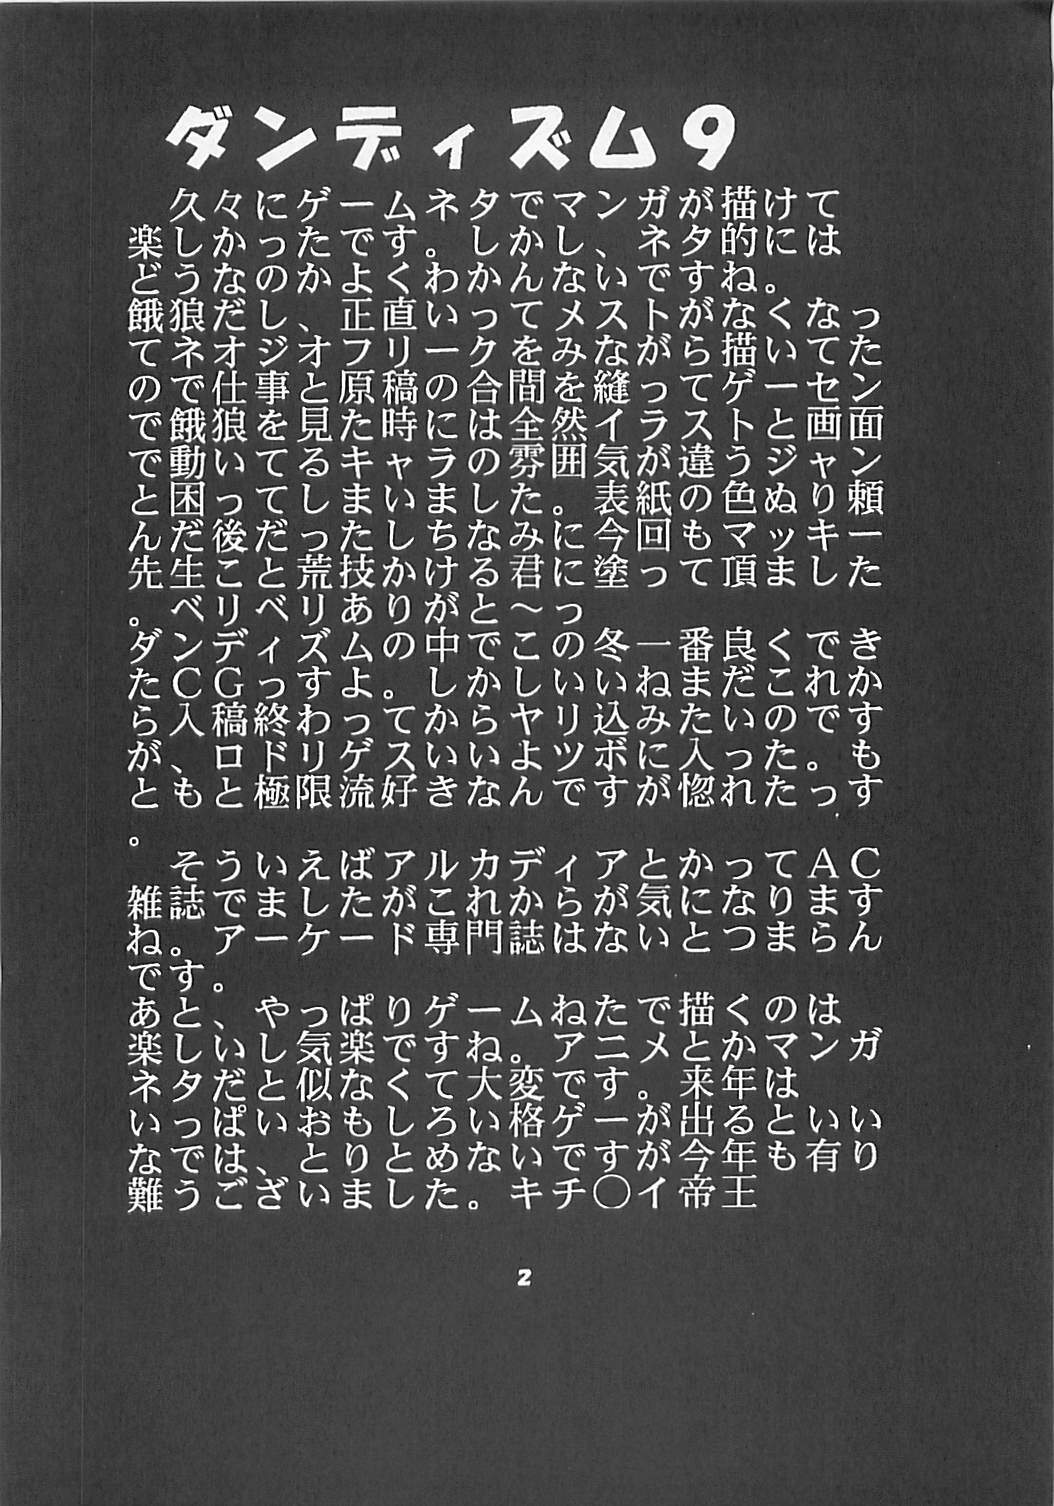 ダンディズム9
久々にゲームネタでマンガが描けて
楽しかったです。しかし、ネタ的には
どうなのかよくわかんないですね。
餓狼だし、正直いってメストがなくなっ
てネオジオフリークをみながら描いてた
ので仕事と原稿の合間を縫ってゲーセン
で餓狼を見た時には全然イラストと画面
で動いてるキャラの雰囲気が違うジャン
と困ってしまいました。表紙の色ぬり頼
んだ後だったしちなみに今回もマッキー
先生こと荒技かける君に塗って頂ました
。ベリベリありがと〜っ
ダンディズムの中でこの冬一番良くでき
たCGっすよ。しかしいいねまだこれか
ら入稿終わってからヤリ込みたいのです
が、ロドリゲスいいよツボに入った。も
ともと極限流好きなんですが惚れたっす
。
そういえばアルカディアとかってAC
雑誌でましたがこれからが気になります
ね。アーケード専門誌はないとつまらん
です。
あと、やっぱりゲームねたで描くのは
楽しいし気楽ですね。アニメとかマンガ
ネタだと似なくて大変です。来年は
いっぱいおもしろい格ゲーが出るといい
なでは、とりとめないですが今年も有り
難うございました。キチ〇イ帝王
2